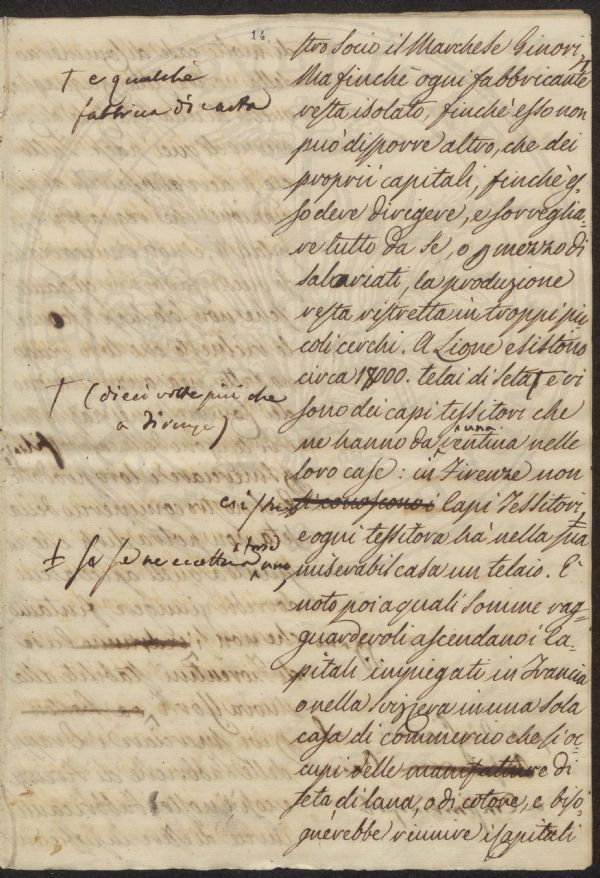 14
stro socio il Marchese Ginori, †
Ma finchè ogni fabbricante
resta isolato, finchè esso non
può disporre altro, che dei
proprii capitali, finchè es=
so deve dirigere, e sorveglia=
re tutto da se, o p mezzo di
salariati, la produzione
resta ristretta in troppi pic
coli cerchi. A Lione esistono
circa 18000. telai di seta † e vi
sono dei capi tessitori che
ne hanno da una ventina nelle
loro case: in Firenze non
si conoscono i Capi Tessitori,
e ogni tessitora hà nella sua
miserabil casa un telaio. È
noto poi a quali somme rag=
guardevoli ascendano i Ca=
pitali impiegati in Francia
o nella Svizzera in una sola
casa di commercio che si oc=
cupi delle manifatture di
seta di lana, o di cotone, e biso=
gnerebbe riunire i capitali
† e qualche
fabbrica di carta
† (dieci volte più che
a Firenze)
esistono
‡ se se ne eccettua
uno